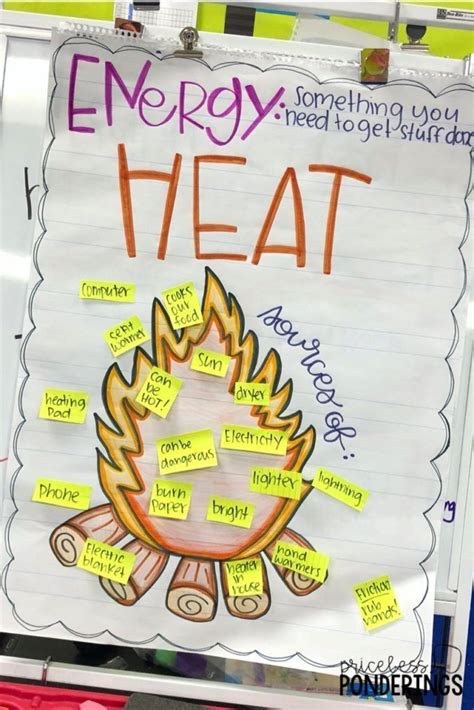 ENERGY: something you
need to get stuff done
HEAT
sources of:
computer
cooks
our
food
seat
warmer
sun
can
be
HOT!
dryer
heating
pad
can be
dangerous
Electricity
lighter
lightning
phone
burn
paper
bright
Electric
blanket
heater
in
house
hand
warmers
Friction
rub
hands!
priceless
PONDERINGS